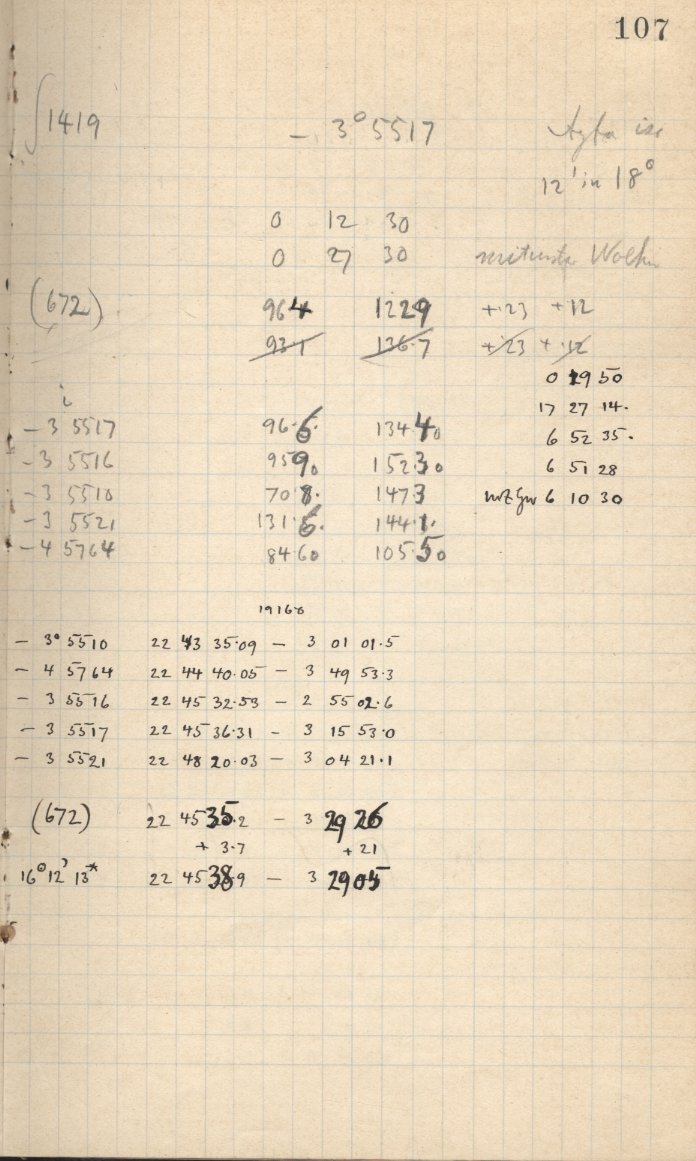 107
∫1419 - 3° 5517
12' in 18°
0 12 30
0 27 30 mitunter Wolken
(672) 96 4 122 9 +.23 +.12
93.1 136.7 +.23 +.12
0 29 50
17 27 14.
- 3 5517 96.6. 134 4 0
6 52 35.
- 3 5516 95 9 0 152.3 0
6 51 28
- 3 5510 70 8. 147 3
6 10 30
- 3 5521 131 6. 144.1.
- 4 5764 84 6 0 105 5 0
- 3° 5510 22 43 35.09 - 3 01 01.5
- 4 5764 22 44 40.05 - 3 49 53.3
- 3 5516 22 45 32.53 - 2 55 02.6
- 3 5517 22 45 36.31 - 3 15 53.0
- 3 5521 22 48 20.03 - 3 04 21.1
(672) 22 45 35.2 - 3 29 26
+ 3.7 + 21
16° 12' 13* 22 45 38.9 - 3 29 05